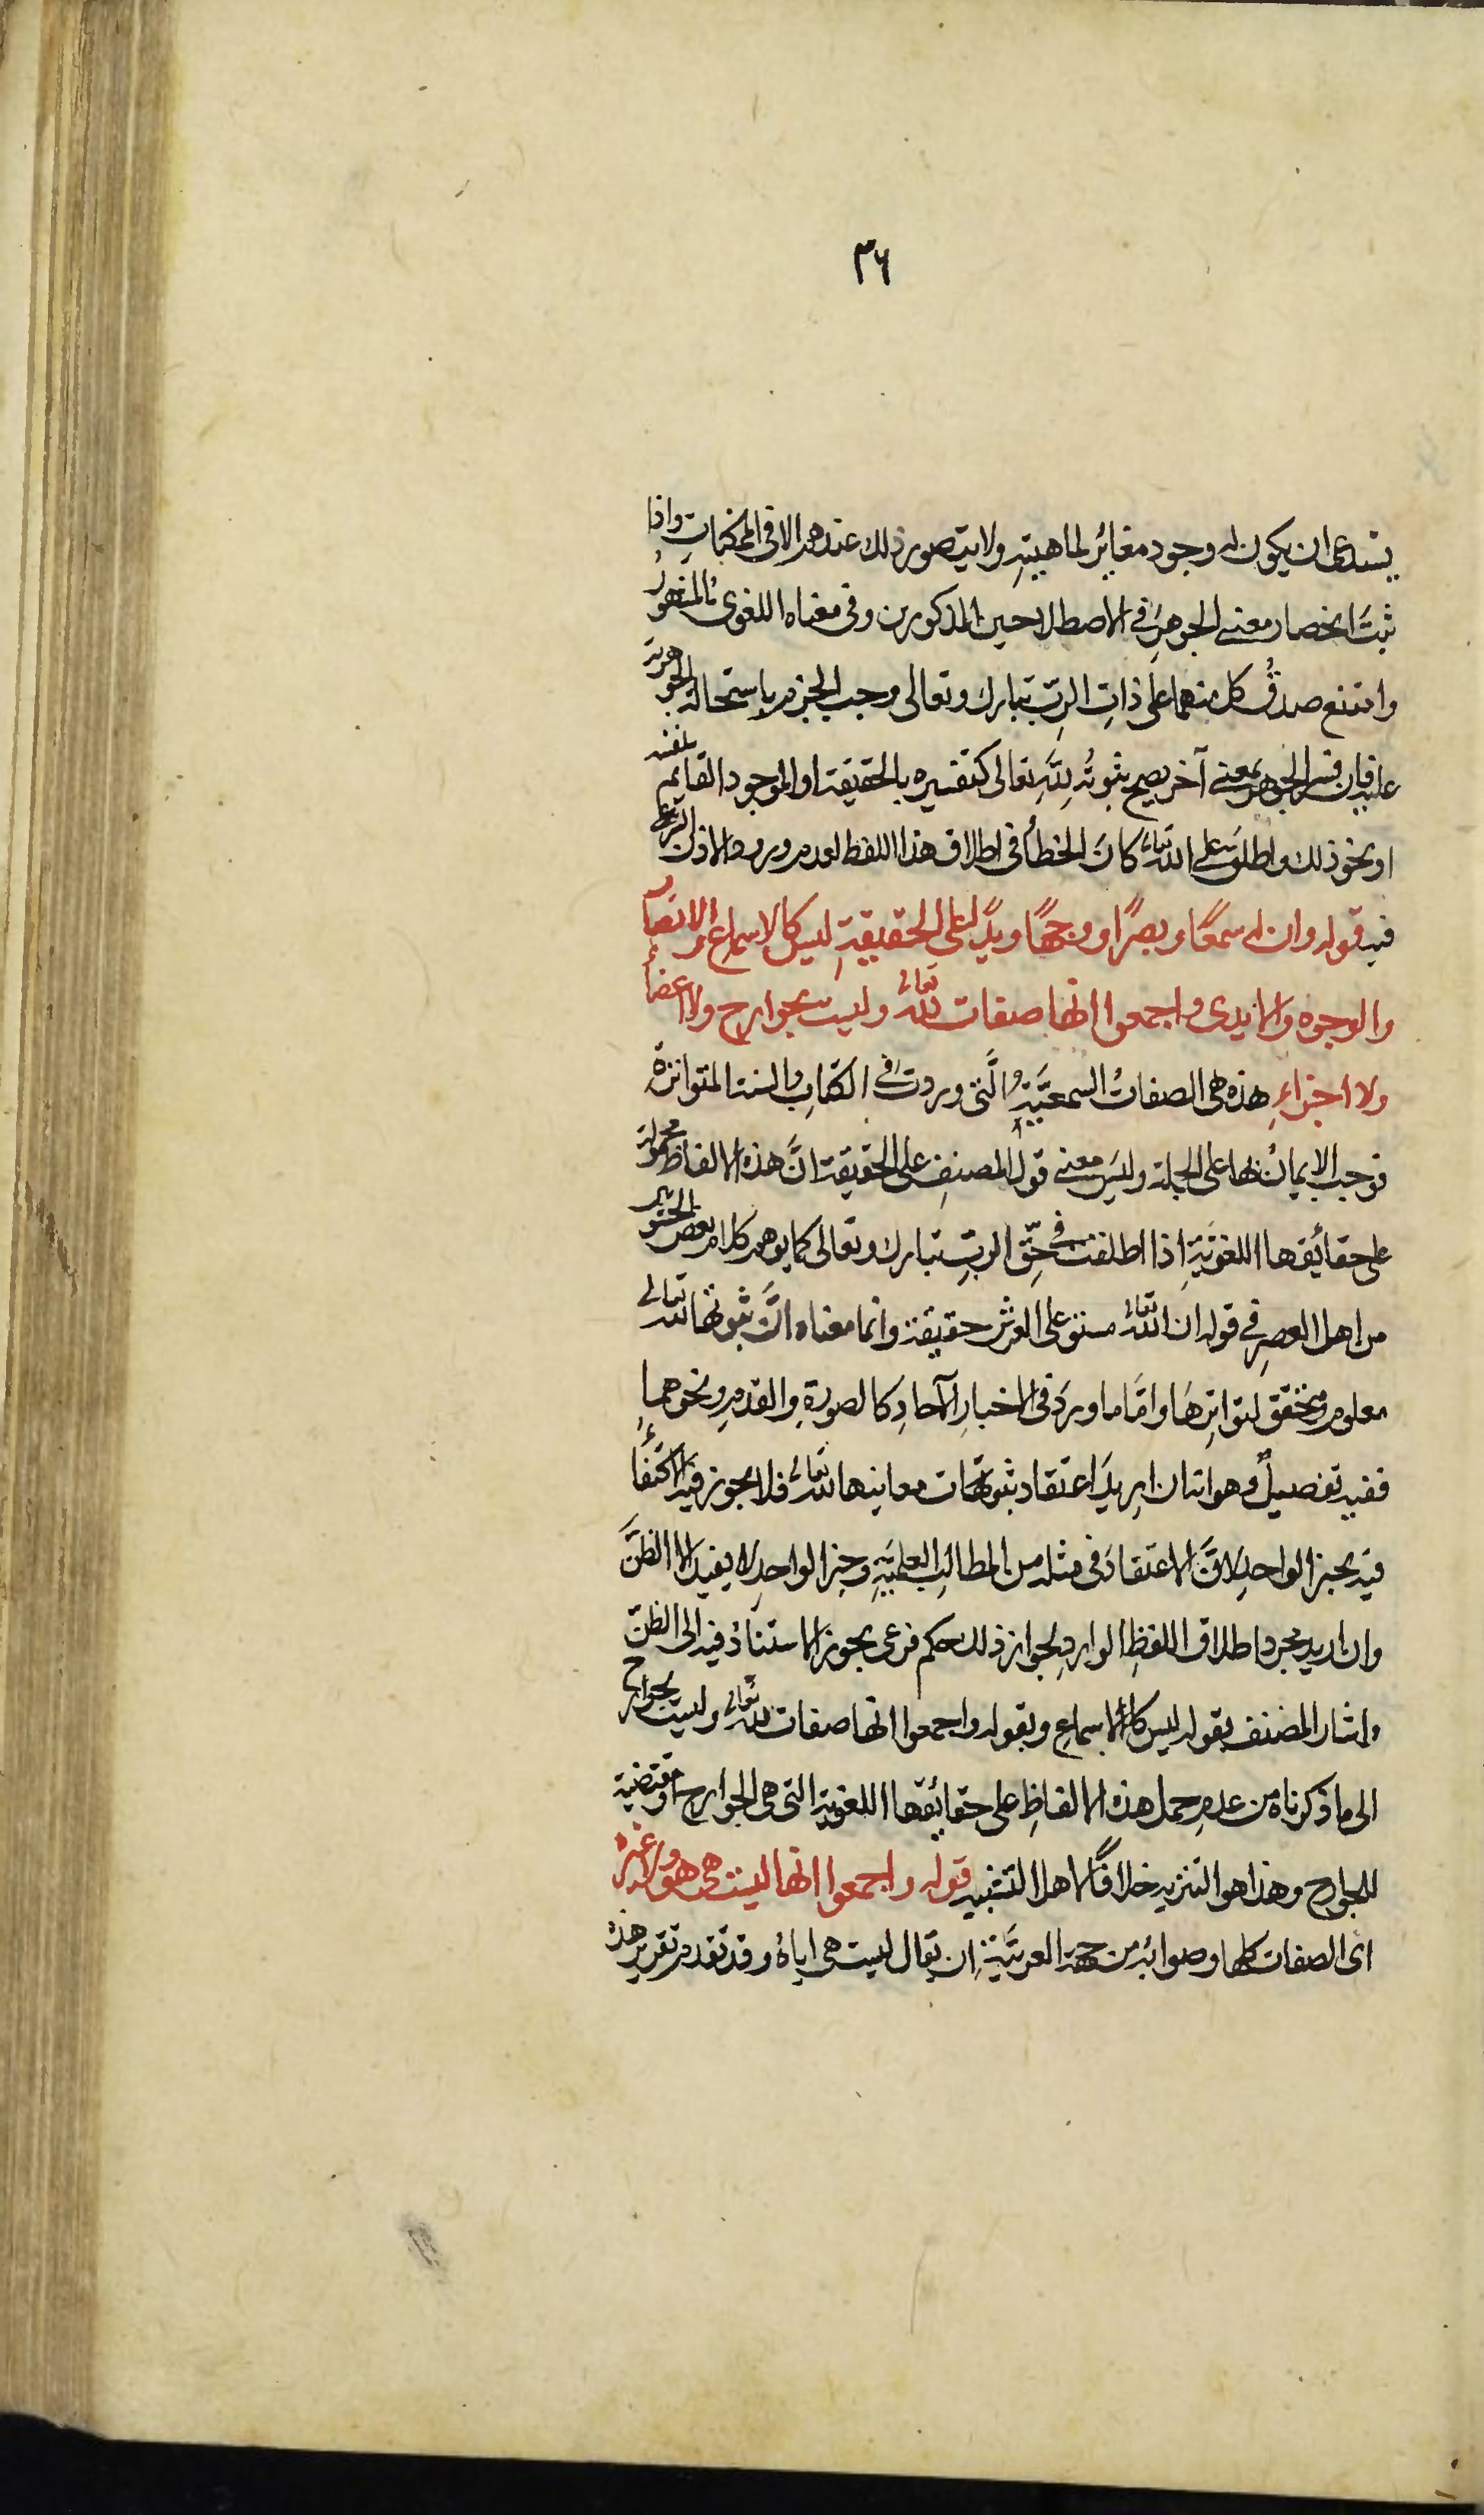 ٣٦
يستدعى ان يكون له وجود مغاير لماهيتهِ ولا يتصور ذلك عندهم الا فى الممكنات واذا
ثبتَ انحصار معنى الجوهرِ فى الاصطلاحين المذكورين وفى معناه اللغوى المشهورُ
وامتنع صدقُ كل منهما على ذاتِ الربِّ تبارك وتعالى وجب الجزم باستحالة الجوهرية
عليه فان فسر الجوهر بمعنى آخر يصح ثبوتُه لِلّهِ تعالى كتفسيره بالحقيقة او الموجود القايم بنفسه
او نحو ذلك واطلق على الله تعالى كانَ الخطأُ فى اطلاق هذا اللفظ لعدم ورود الاذن الشرعى
فيه قوله وان له سمعًا وبصرًا ووجهًا ويدًا على الحقيقةِ ليس كالاسماع والابصار
والوجوه والايدى واجمعوا انها صفات لله تعالى وليست بجوارح ولا اعضاء
ولا اجزاءِ هذه هى الصفاتُ السمعيَّةِ الَّتى وردت فى الكتابِ والسنة المتواترة
فوجب الايمانُ بها على الجملة وليسَ معنى قول المصنفِ على الحقيقة انَّ هذه الالفاظ محمولة
على حقائقها اللغويَّةِ اذا اطلقت فى حقِّ الربِّ تبارك وتعالى كما يوهم كلام بعض الحشوية
من اهل العصرِ فى قوله ان الله تعالى مستو على العرش حقيقة وانما معناه انَّ ثبوتها لله تعالى
معلوم متحقق لتواترِهَا وامَّا ما وردَ فى الاخبارِ الآحادِ كالصورةِ والقدمِ ونحوهما
ففيه تفصيلٌ وهو انه ان اريدَ اعتقاد ثبوت معانيها لله تعالى فلا يجوز فيه الاكتفاءُ
فيه بخبر الواحدِ لانَّ الاعتقادَ فى مثله من المطالبِ العلميّةِ وخبر الواحدِ لا يفيد الا الظنَّ
وان اريد مجرد اطلاق اللفظِ الواردِ لجواز ذلك حكم فرعى يجوز الاستنادُ فيه الى الظنّ
واشار المصنف بقوله ليس كالاسماعِ وبقوله واجمعوا انها صفات لله تعالى وليست بجوارح
الى ما ذكرناهُ من عدمِ حمل هذه الالفاظِ على حقائقها اللغوية التى هى الجوارح او مقتضية
للجوارح وهذا هو التنزيه خلافًا لاهل التشبيه قوله واجمعوا انها ليست هى هو ولا غيره
اى الصفات كلها وصوابُه من جهة العربيَّةِ ان يقال ليست هى اياهُ وقد تقدم تقرير هذه